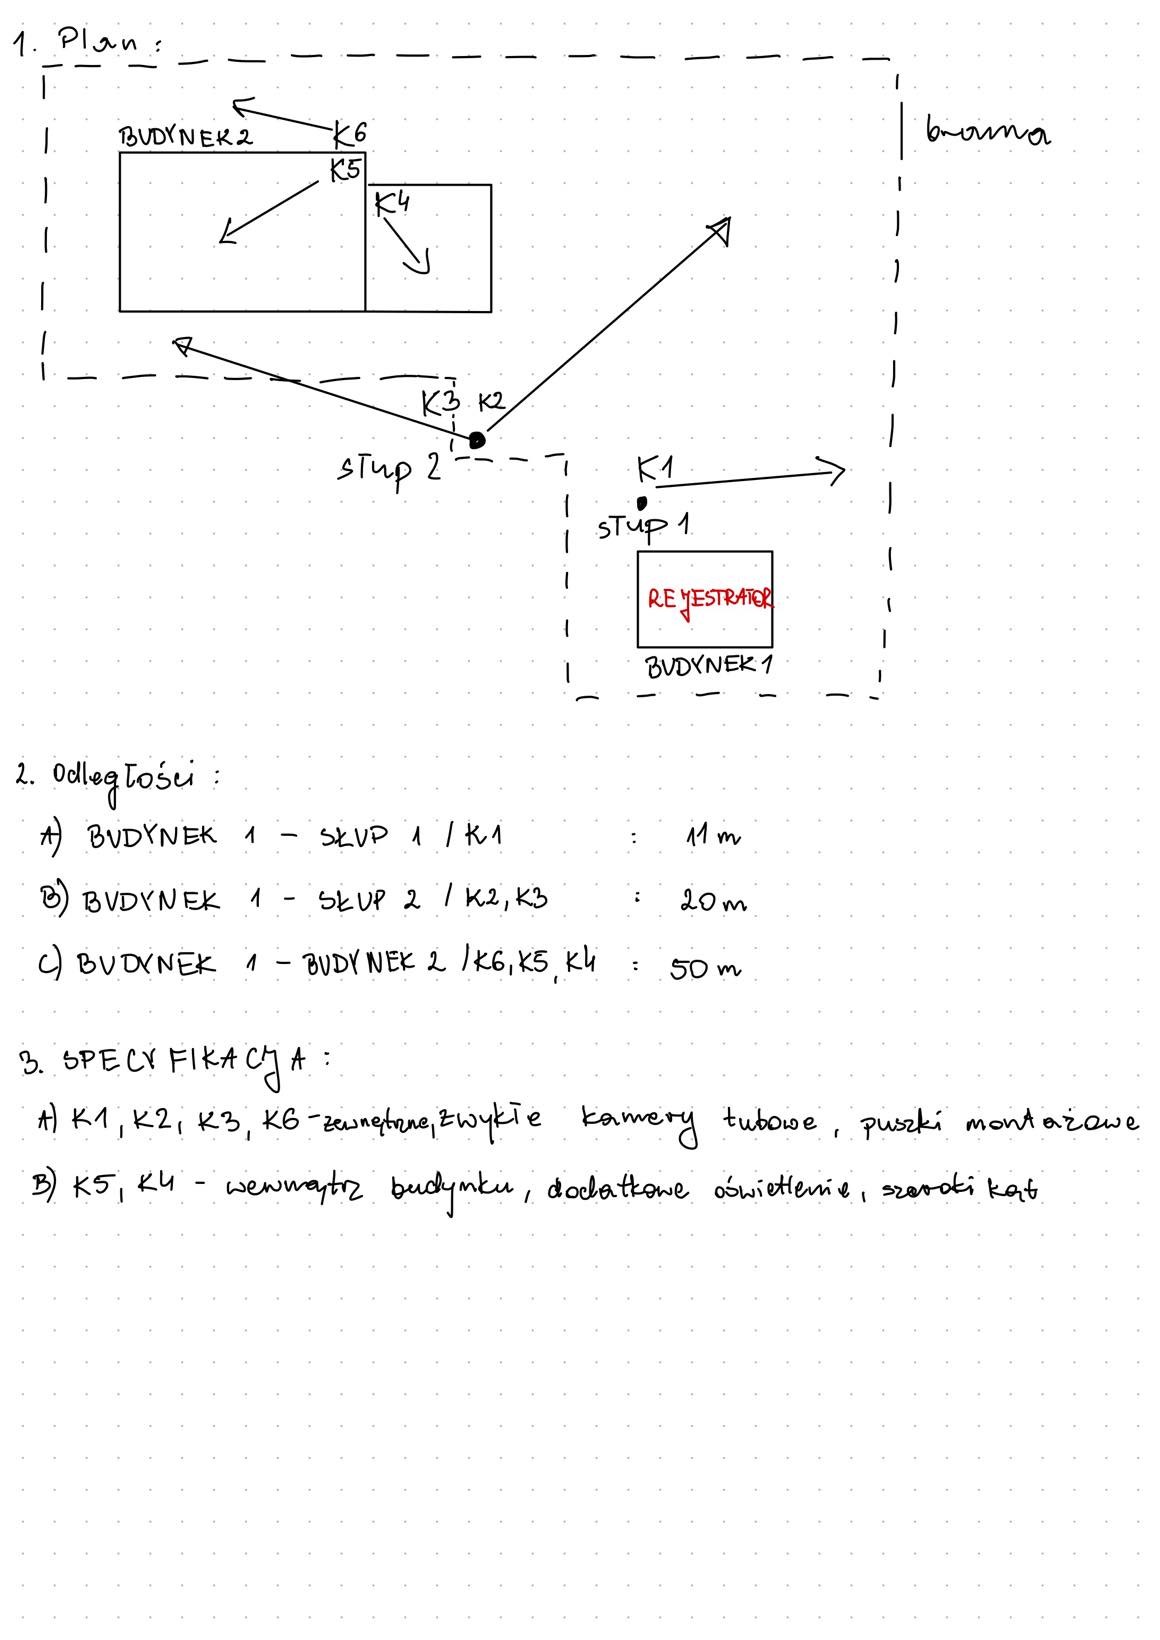 1. Plan :
brama
BUDYNEK 2
K6
K5
K4
K3 K2
słup 2
K1
słup 1
REJESTRATOR
BUDYNEK 1
2. Odległości :
A) BUDYNEK 1 - SŁUP 1 / K1 : 11 m
B) BUDYNEK 1 - SŁUP 2 / K2, K3 : 20 m
C) BUDYNEK 1 - BUDYNEK 2 / K6, K5, K4 : 50 m
3. SPECYFIKACJA :
A) K1, K2, K3, K6 - zewnętrzne, zwykłe kamery tubowe, puszki montażowe
B) K5, K4 - wewnątrz budynku, dodatkowe oświetlenie, szeroki kąt